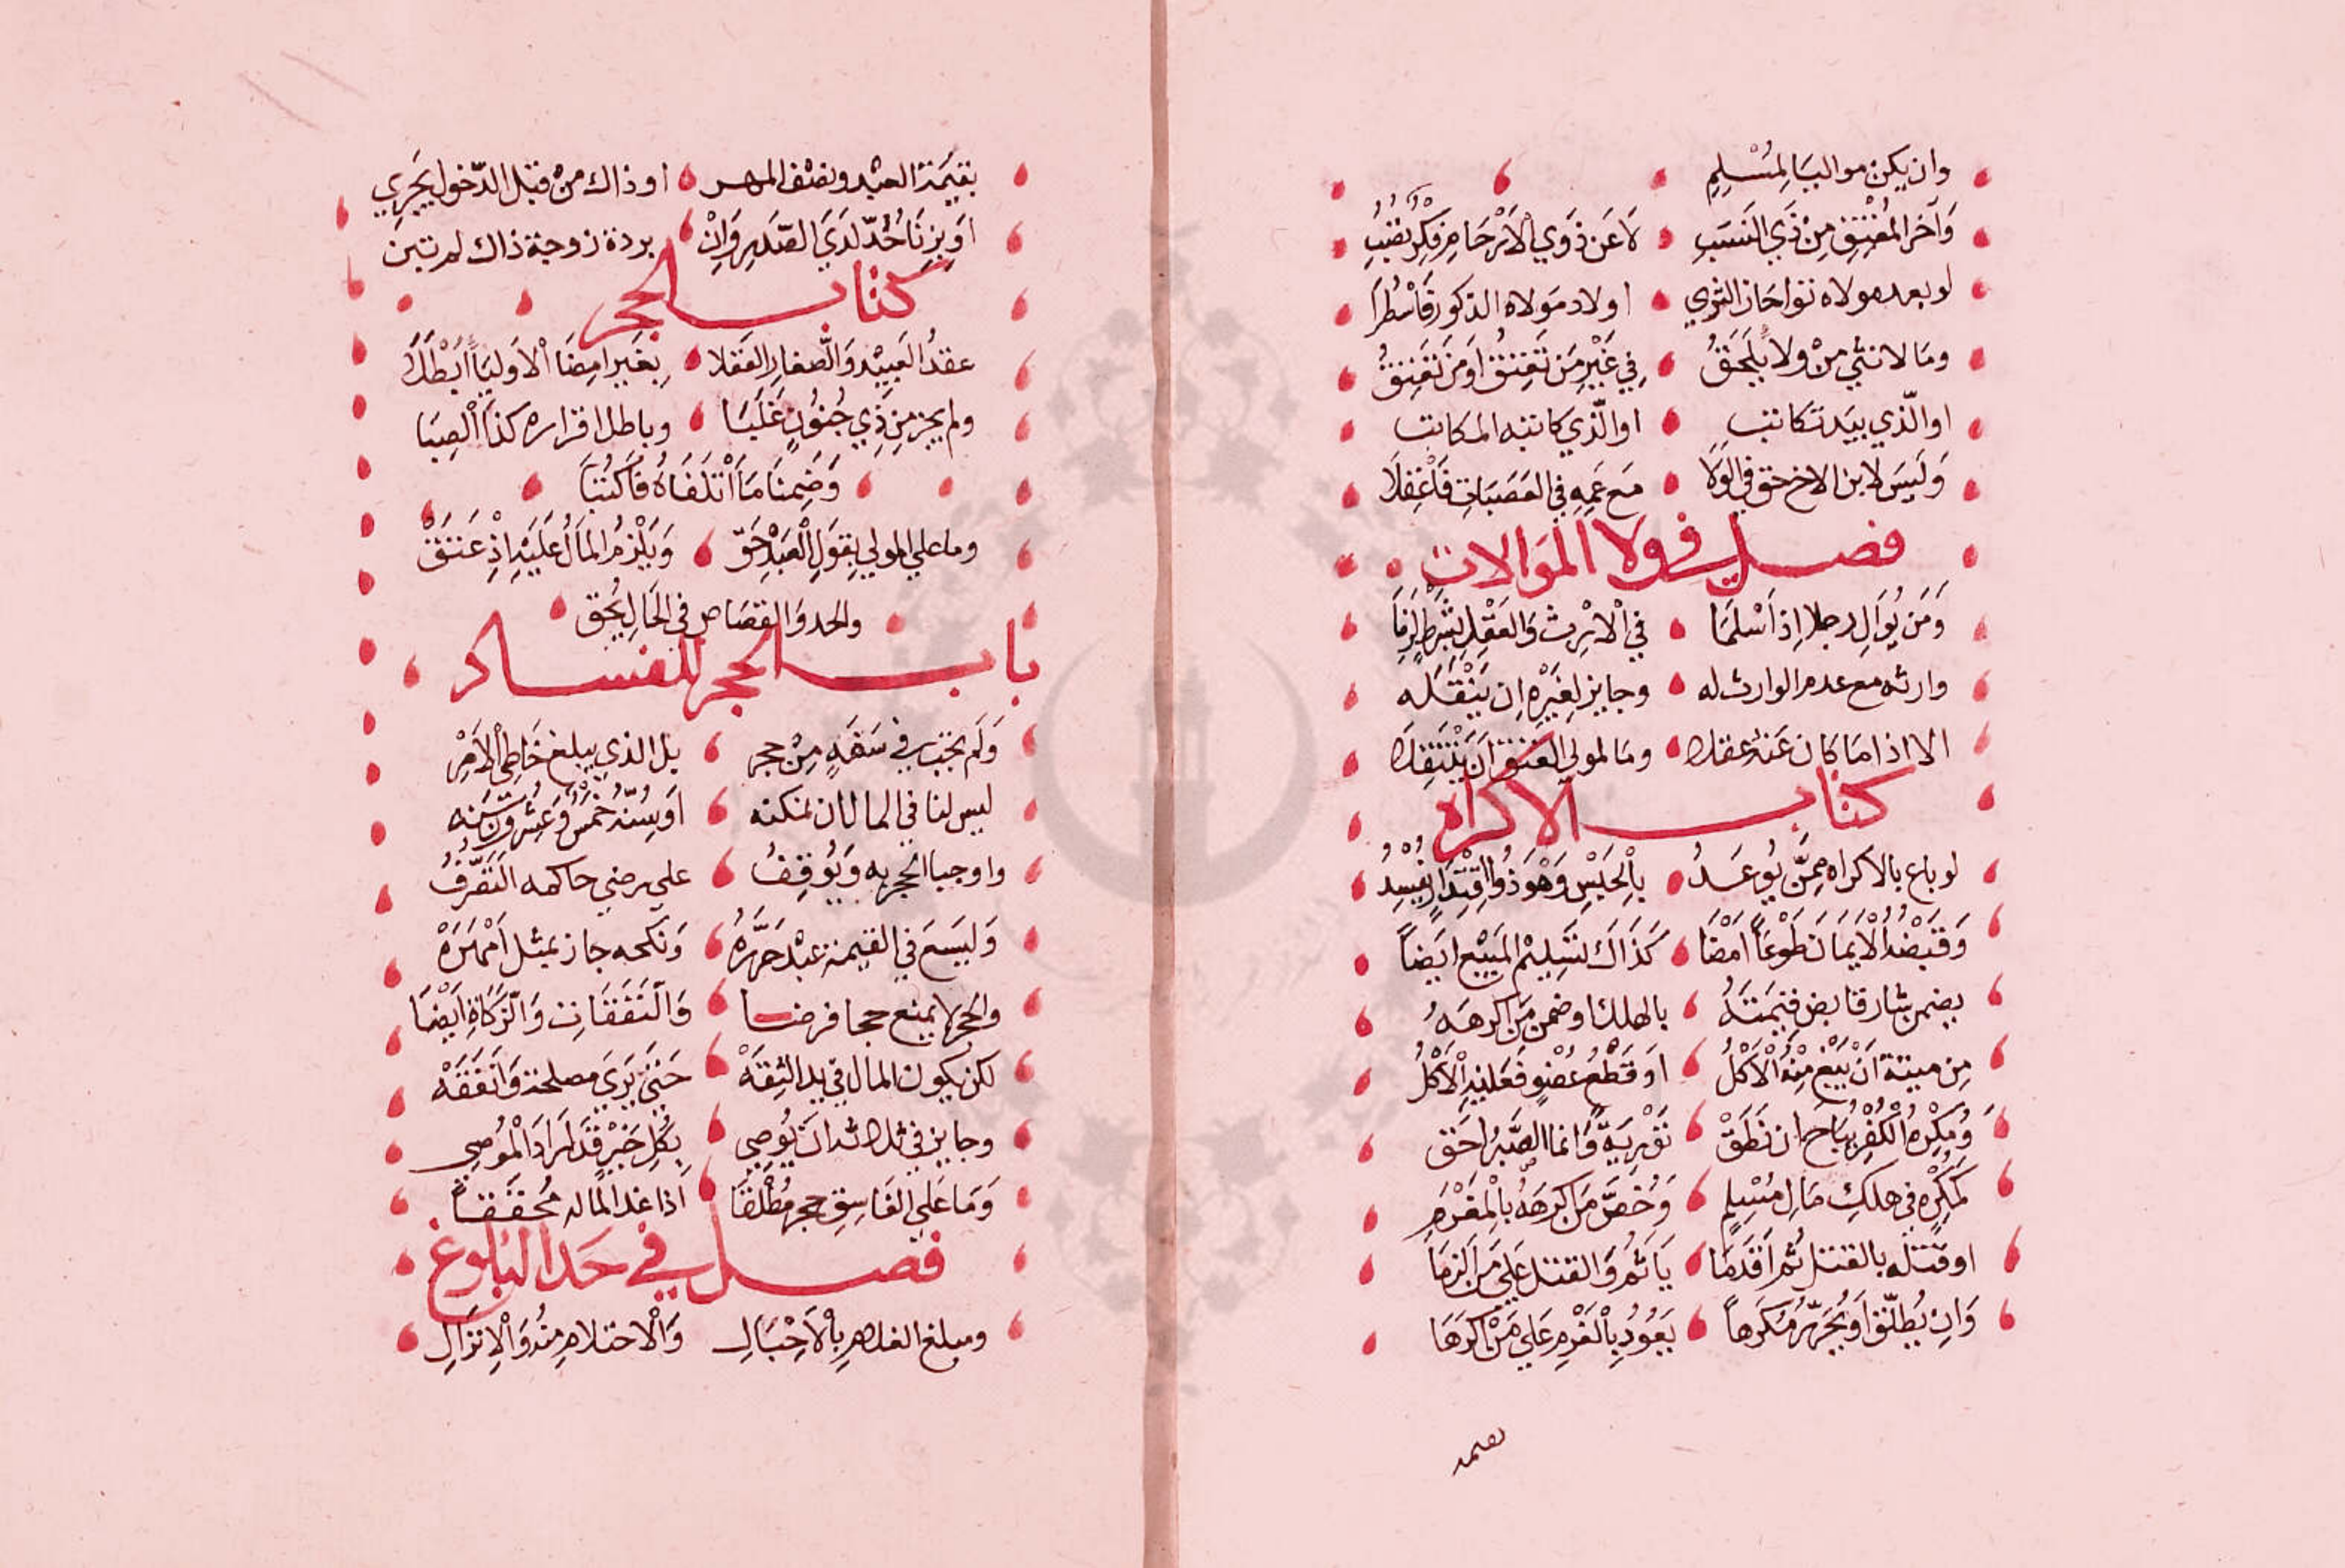 وان يكن مواليا لمُسْلِمِ
وَآخر المُعْتِقِ مِنْ ذَي النَسَبِ لَا عَن ذَوي الأَرْحَامِ فكِّرْ تُصِبِ
لو بعده مولاه ثوا حَاز الثري اولاد مَولاه الذكور فَاسْطُرَا
ومَا لانثي مِنْ ولاً يُلحَقُ فِي غَيْرِ مَن تَعتِقُ اوَ مَن تَعْتِقُ
او الّذي بيَد تكاتب او الّذي كاتبه المكاتب
وَلَيسَ لابن الاخ حق في الوَلَا مَع عَمِهِ في العَصَبَاتِ فَاعْقِلَا
فصل في ولا المَوالات
وَمَن يُوَالِ رجلا اِذ اَسْلَمَا في الْاِرْث وَالعَقْلِ بِشَرْطٍ لَزِمَا
وارثه مع عدم الوارث له وجايز لِغَيْرِهِ ان يَنْقُلَه
الا اذا مَا كان عَنهُ عقلا ومَا لمولي العتق اَنْ يَنْتَقِلَا
كتاب الاكراه
لو باع بالاكراه مِمَّن يُوعَدُ بِالْحَبْسِ وَهْوَ ذُو اقْتِدَارٍ يَفْسُدُ
وَقَبْضُهُ الْاَيمَان طَوْعَاً اَمْضَا كَذَاكَ تسْلِيْمُ المَبِيْع ايَضاً
يضمن شار قابض قيمَتَهُ بالهلك او ضمن مَن اكرهَهُ
مِن ميتة اَنْ يَبْغِ مِنْهُ الْاَكْلُ اوَ قَطْعُ عُضْوٍ فَعَليْهِ الْاَكْلُ
وَمُكْرَهُ الْكُفْرِ يُبَاح ان نَطَقْ تَوْرِيَةً وَانما الصَّبْرُ احَق
كَمُكْرَهٍ في هلكِ مَالِ مُسْلِمٍ وَخُصَّ مَن اكرَهَهُ بِالْمَغْرَمِ
او قتله بالقتل ثُم اَقدَمَا يَاثم وَالقتل عَلي مَن اَلزمَا
وَاِن يُطلّق اَوْ يُحَرِّرْ مُكرَهاً يَعُوْدُ بِالْغُرْمِ عَلي مَنْ اكرَهَا
بقيمة العبْد ونصْف المهر او ذاك منْ قبْل الدّخول يَجْرِي
اوَ بِزِنَا حُدّ لَدَي الصَّدِيم وَاِنْ بردة زوجة ذاك لم تبن
كتاب الحجر
عقدُ العَبِيْد وَالصّغار العَقلا بِغَيرِ امِضَا الْاوَليَا اَبْطَلَا
ولم يجز مِن ذِي جُنُوْنٍ غَلَبَا وباطل اقراره كذَا الْصِبَا
وَضمِنَا مَا اَتْلَفَاهُ فَاكتُبَا
وما علي المولي بِقَوَلِ الْعَبْدِ حَقّ وَيَلْزمُ المَالُ عَلَيْهِ اِذْ عَتَقْ
والحد وَالقصَاص في الحَالِ يُحَق
باب الحجر للفساد
وَلَم يجَب في سَفَهٍ مِنْ حجر بل الذي يبلغ خَاطِي الْاَمْرِ
ليس لنا في المال ان نمكنه اوَ سِنّهُ خَمْسٌ وَعِشْرُوْنَ سَنَه
واوجبا الحجر به وَيُوقِفُ علي رضي حاكمه التَصَرّفُ
وَليَسَعَ في القيمة عبْد حَرّرَهُ وَنكحه جاز بمثل اَمْهَرَهْ
والحجر لا يمنع حجا فرضا وَالنَفَقَات وَالزّكَاةِ ايَضْا
لكن يكون المال في يد الثِقَهْ حَتي يَرَي مصلحة وَانَفَقَهْ
وجايز في ثلاثه اَن يُوصِي بِكُلِ خَيْرٍ قَد اَرَادَ الْمُوْصِي
وَمَا عَلي الفَاسِقِ حجر مُطْلَقَا اذا غدا لماله مُحَقِقاً
فصل في حَد البُلوغ
ومبلغ الغلام بِالْاَحْبَالِ وَالْاحتلام مِنهُ وَالْاِنزَالِ